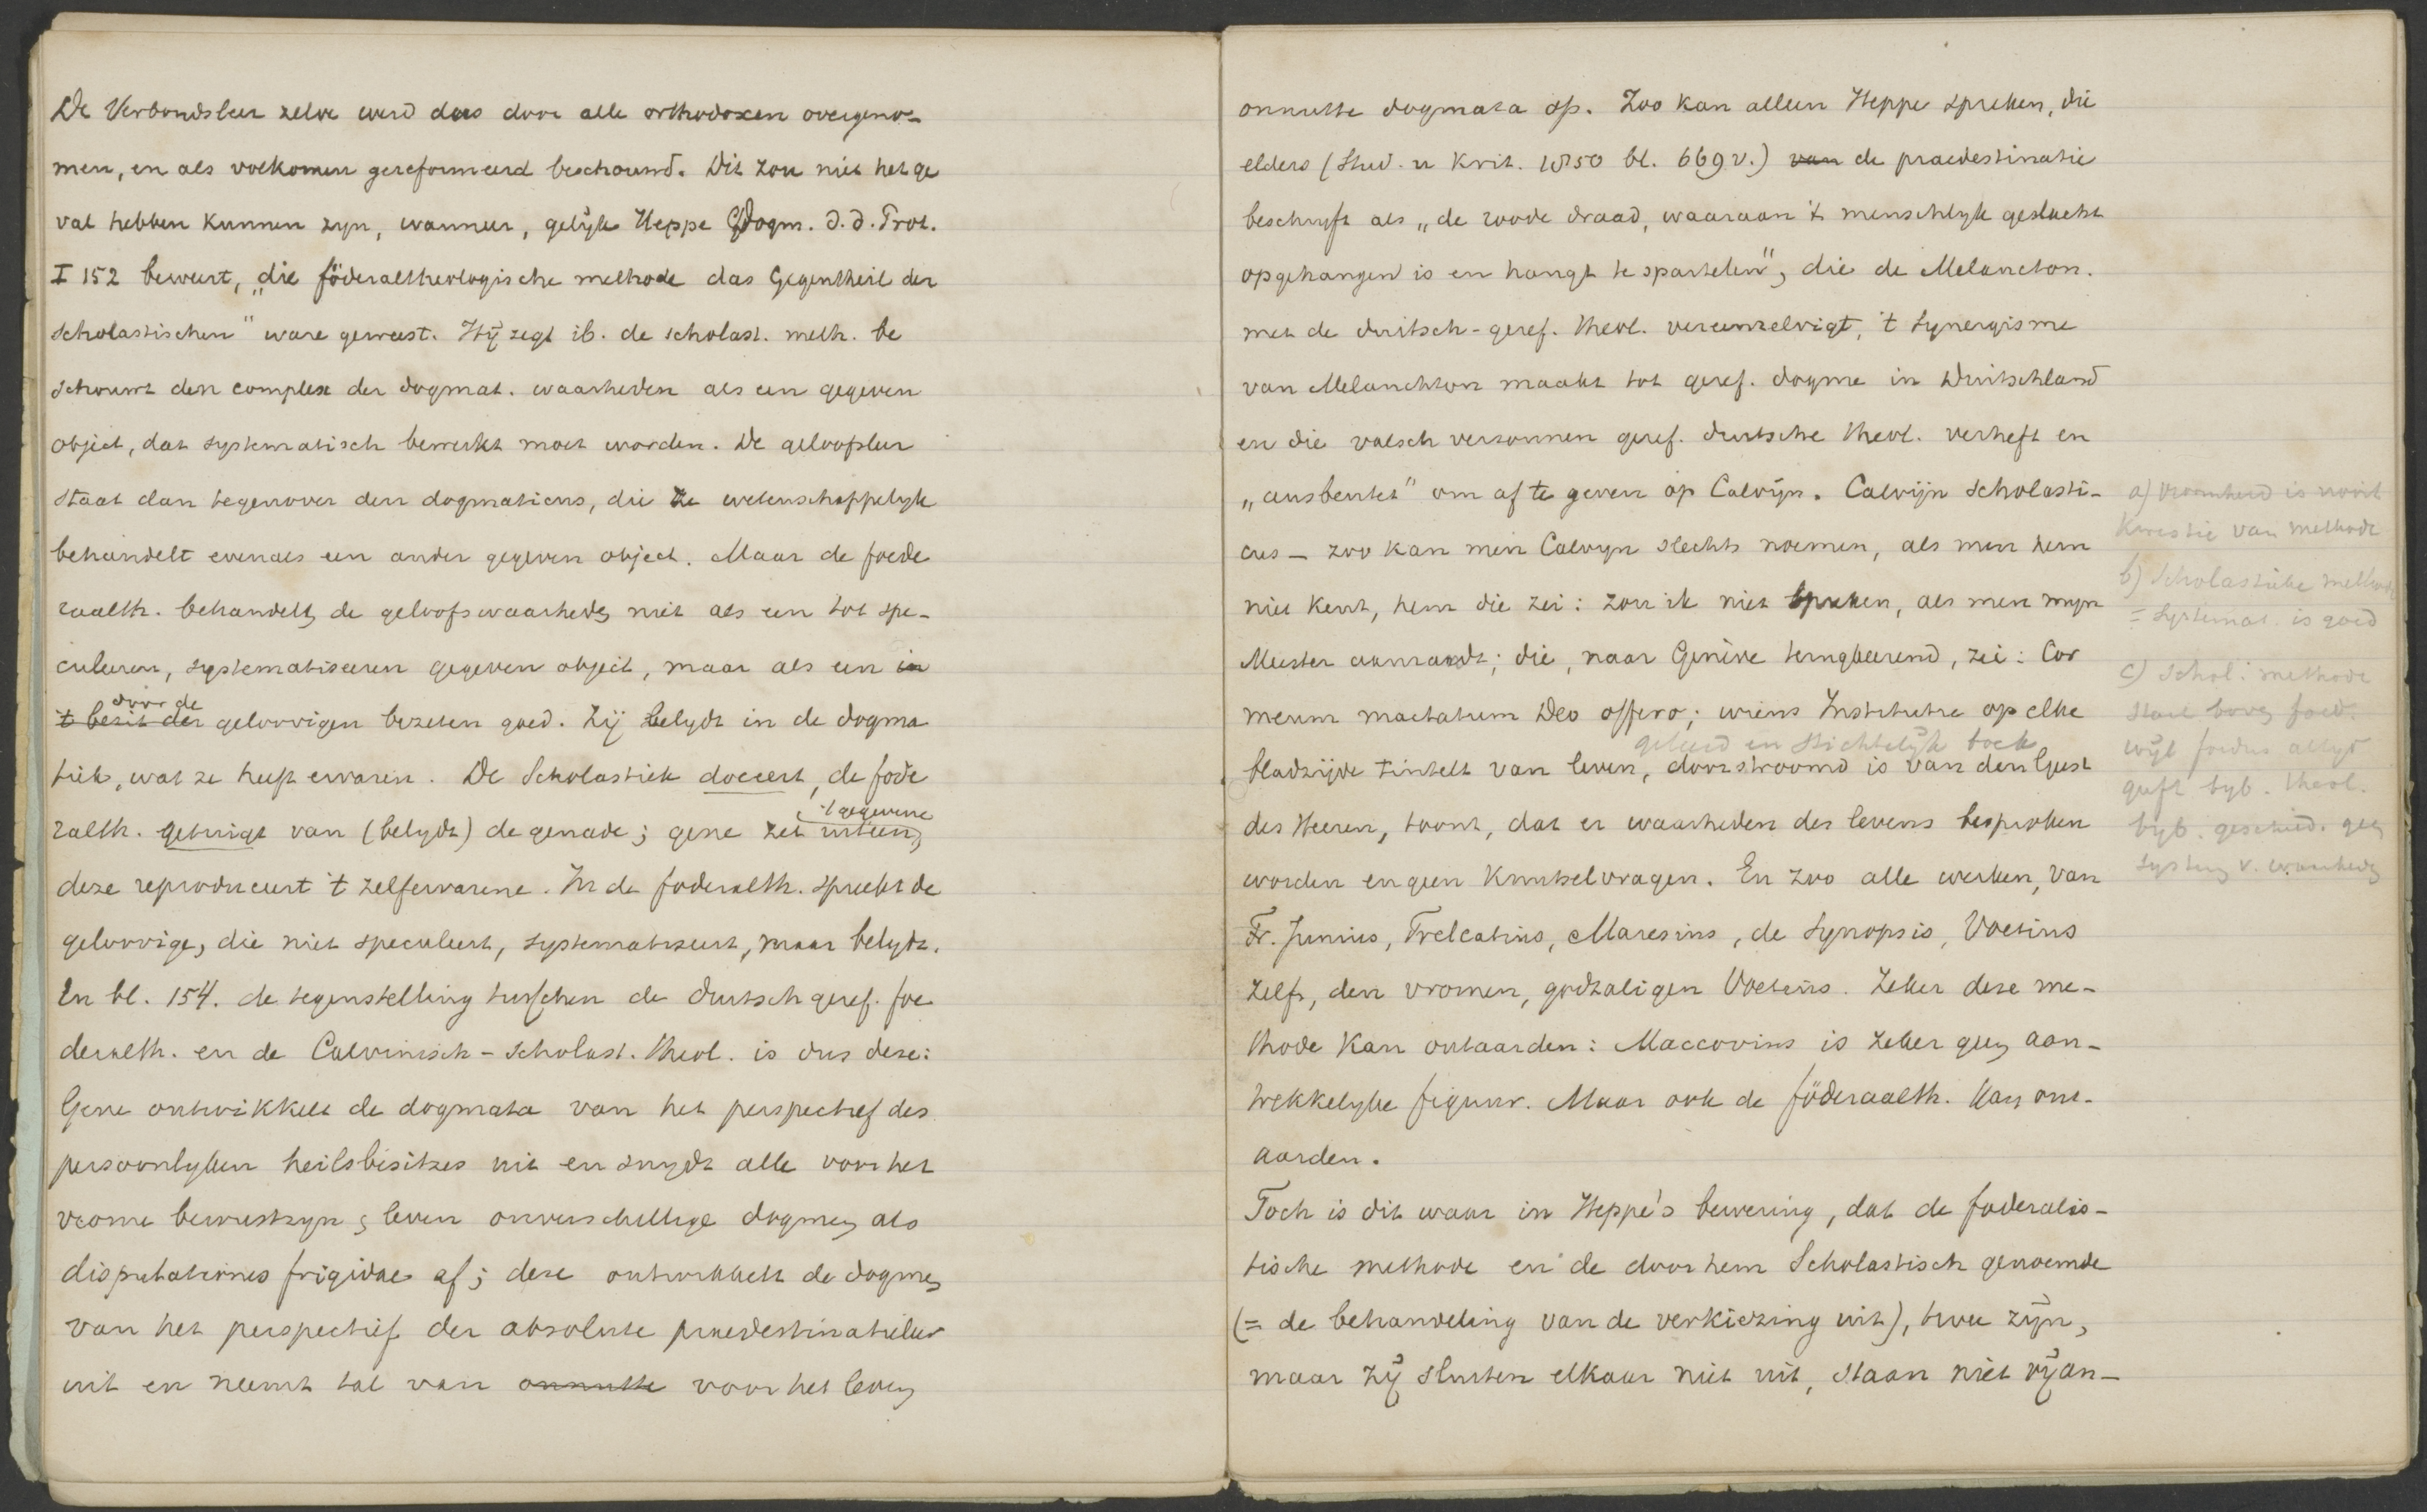 De Verbondsleer zelve werd dus door alle orthodoxen overgeno-
men, en als volkomen gereformeerd beschouwd. Dit zou niet het ge
val hebben kunnen zyn, wanneer, gelijk Heppe Dogm. d. d. Prot.
I 152 beweert, „die föderaltheologische methode das Gegentheil der
scholastischen" ware geweest. Hij zegt ib. de scholast. meth. be
schouwt den complex der dogmat. waarheden als een gegeven
object, dat systematisch bewerkt moet worden. De geloofsleer
staat dan tegenover den dogmaticus, die ze wetenschappelyk
behandelt evenals een ander gegeven object. Maar de foede
raalth. behandelt de geloofswaarheden niet als een tot spe-
culeeren, systematiseeren gegeven object, maar als een in
door de
't bezit der geloovigen bezeten goed. Zij belydt in de dogma
tiek, wat ze heeft ervaren. De Scholastiek doceert, de föde
't gegevene
ralth. getuigt van (belydt) de genade; gene zet uiteen,
deze reproduceert 't zelfervarene. In de foderalth. spreekt de
geloovige, die niet speculeert, systematiseert, maar belydt.
En bl. 154. de tegenstelling tusschen de duitsch geref. foe
deralth. en de Calvinisch-scholast. theol. is dus deze:
Gene ontwikkelt de dogmata van het perspectief des
persoonlyken heilsbesitzes uit en snydt alle voor het
vrome bewustzyn & leven onverschillige dogmen als
disputationes frigidae af; deze ontwikkelt de dogmen
van het perspectief der absolute praedestinatieleer
uit en neemt tal van onnutte voor het leven
onnutte dogmata op. Zoo kan alleen Heppe spreken, die
elders (Stud. u Krit. 1850 bl. 669 v.) van de praedestinatie
beschryft als „de roode draad, waaraan 't menschlyk geslacht
opgehangen is en hangt te spartelen", die de Melancton.
met de duitsch-geref. theol. vereenzelvigt, 't Synergisme
van Melanchton maakt tot geref. dogme in Duitschland
en die valsch verzonnen geref. duitsche theol. verheft en
„ausbeutet" om af te geven op Calvijn. Calvijn scholasti-
cus – zoo kan men Calvyn slechts noemen, als men hem
niet kent, hem die zei: zou ik niet spreken, als men myn
Meester aanrandt; die, naar Genève terugkeerend, zei: Cor
meum mactatum Deo offero; wiens Institutie op elke
geleerd en stichtelijk boek
bladzijde tintelt van leven, doorstroomd is van den Geest
des Heeren, toont, dat er waarheden des levens besproken
worden en geen knutselvragen. En zoo alle werken, van
Fr. Junius, Trelcatius, Maresius, de Synopsis, Voetius
zelfs, den vromen, godzaligen Voetius. Zeker deze me-
thode kan ontaarden: Maccovius is zeker geen aan-
trekkelyke figuur. Maar ook de föderaalth. kan ont-
aarden.
Toch is dit waar in Heppe's bewering, dat de foderalis-
tische methode en de door hem Scholastisch genoemde
(= de behandeling van de verkiezing uit), twee zijn,
maar zij sluiten elkaar niet uit, staan niet vyan-
a) vroomheid is nooit
kwestie van methode
b) Scholastieke methode
= systemat. is goed
c) Schol: methode
staat boven foed.
wijl foedus altyd
geeft byb. theol.
byb. geschied. geen
systeem v. waarheden